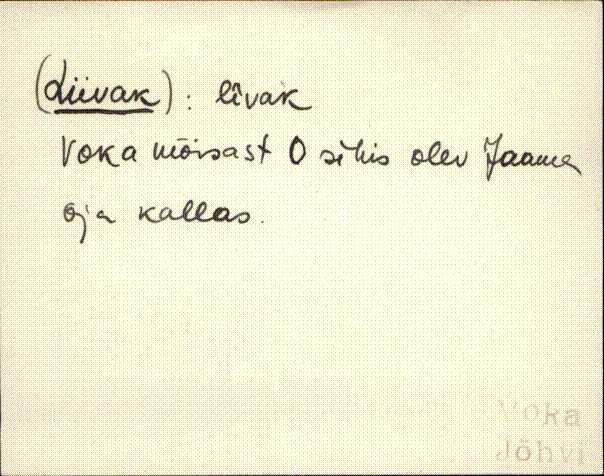 (Liivak) : līvak
Voka mõisast O sihis olev Jaama
oja kallas.
Voka
Jõhvi